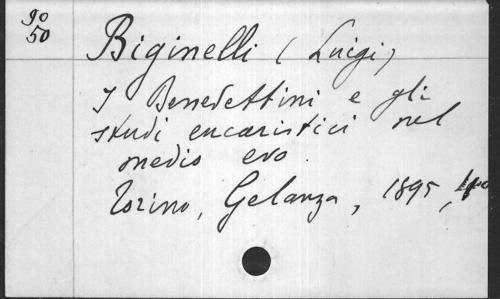 90
50
Biginelli (Luigi)
I Benedettini e gli
studi eucaristici nel
medio evo.
Torino, Gelanza, 1895,